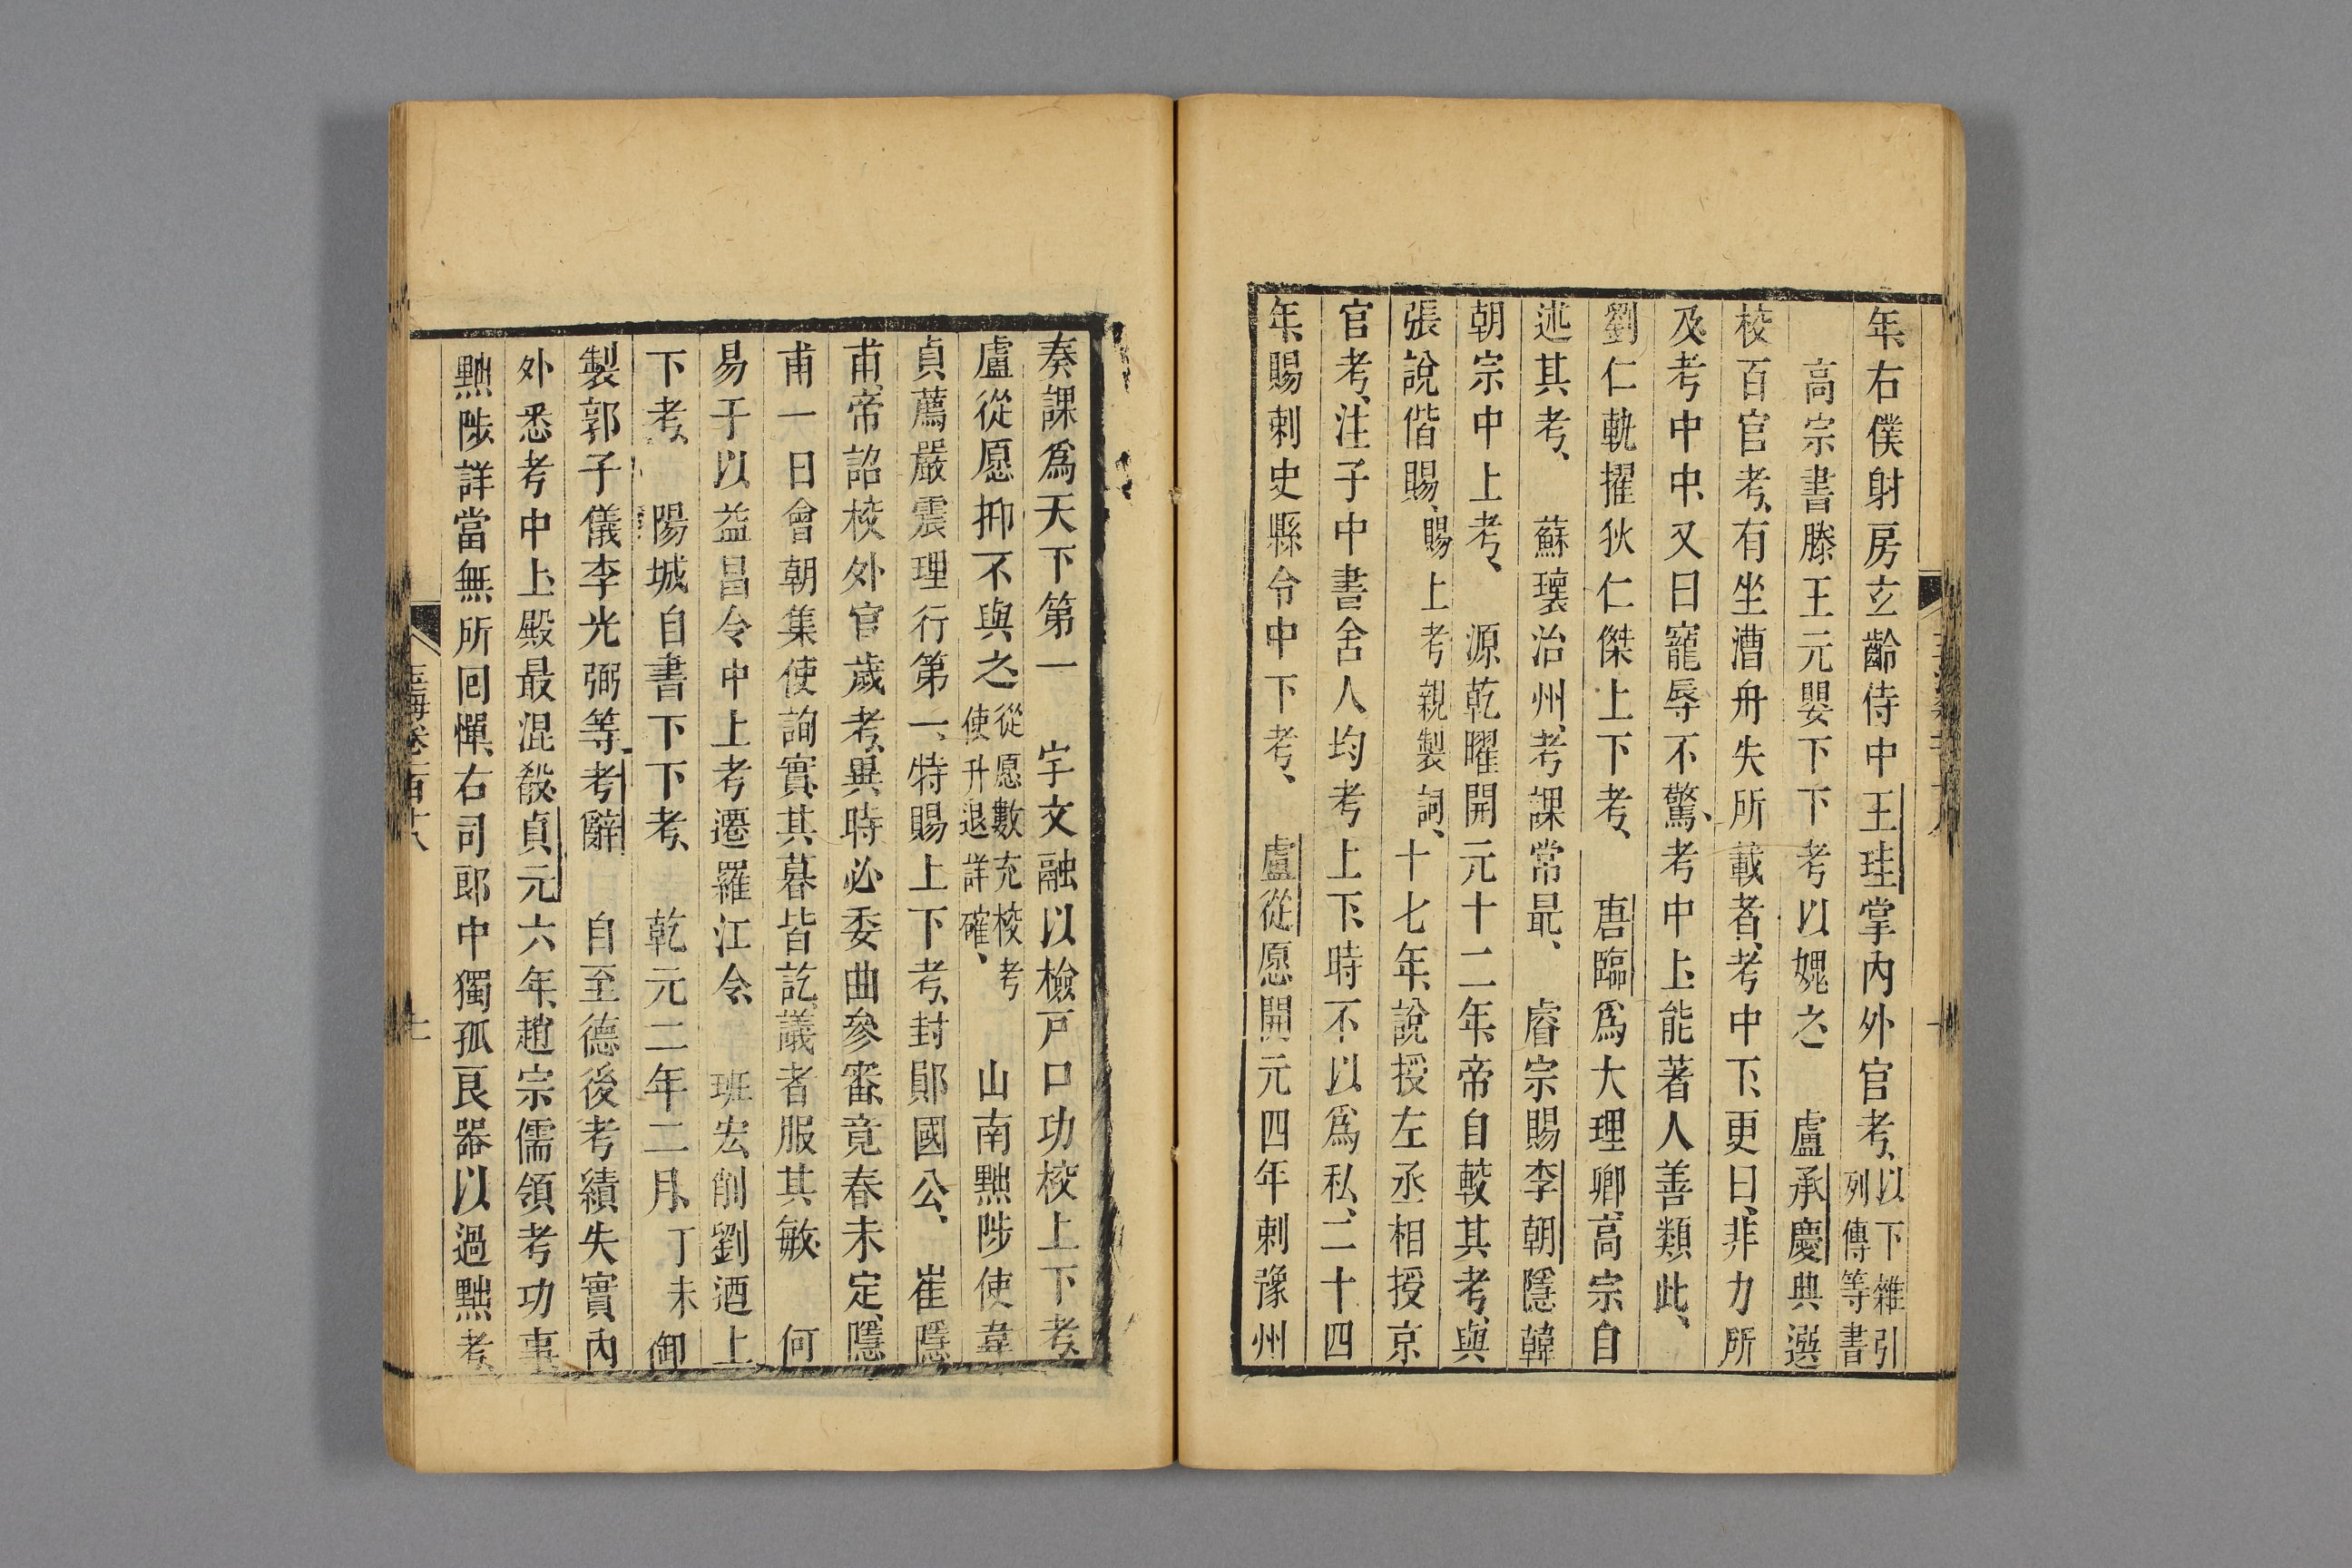 年、右僕射房玄齡侍中王珪掌內外官考、以下雜引列傳等書
高宗書滕王元嬰下下考以媿之　盧承慶典選
校百官考、有坐漕舟失所載者、考中下、更曰、非力所
及、考中中、又曰寵辱不驚、考中上、能著人善類此、
劉仁軌擢狄仁傑上下考、　唐臨爲大理卿、高宗自
述其考、　蘇瓌治州、考課常最、　睿宗賜李朝隱韓
朝宗中上考、　源乾曜開元十二年、帝自較其考、與
張說偕賜、賜上考親製詞、十七年、說授左丞相授京
官考、注子中書舍人均考上下、時不以爲私、二十四
年、賜刺史縣令中下考、　盧從愿開元四年刺豫州
奏課爲天下第一　宇文融以檢戸口功校上下考、
盧從愿抑不與之、從愿數充校考使升退詳確、　山南黜陟使韋
貞薦嚴震理行第一、特賜上下考、封鄖國公、　崔隱
甫、帝詔校外官歲考、異時必委曲參審、竟春未定、隱
甫一日會朝集使詢實、其暮皆訖、議者服其敏、　何
易于以益昌令中上考遷羅江令、　班宏、削劉迺上
下考、　陽城自書下下考、　乾元二年二月、丁未御
製郭子儀李光弼等考辭　自至德後考績失實、內
外悉考中上、殿最混殽、貞元六年、趙宗儒領考功事
黜陟詳當無所回憚、右司郎中獨孤良器以過黜考、
玉海卷一百十八
七